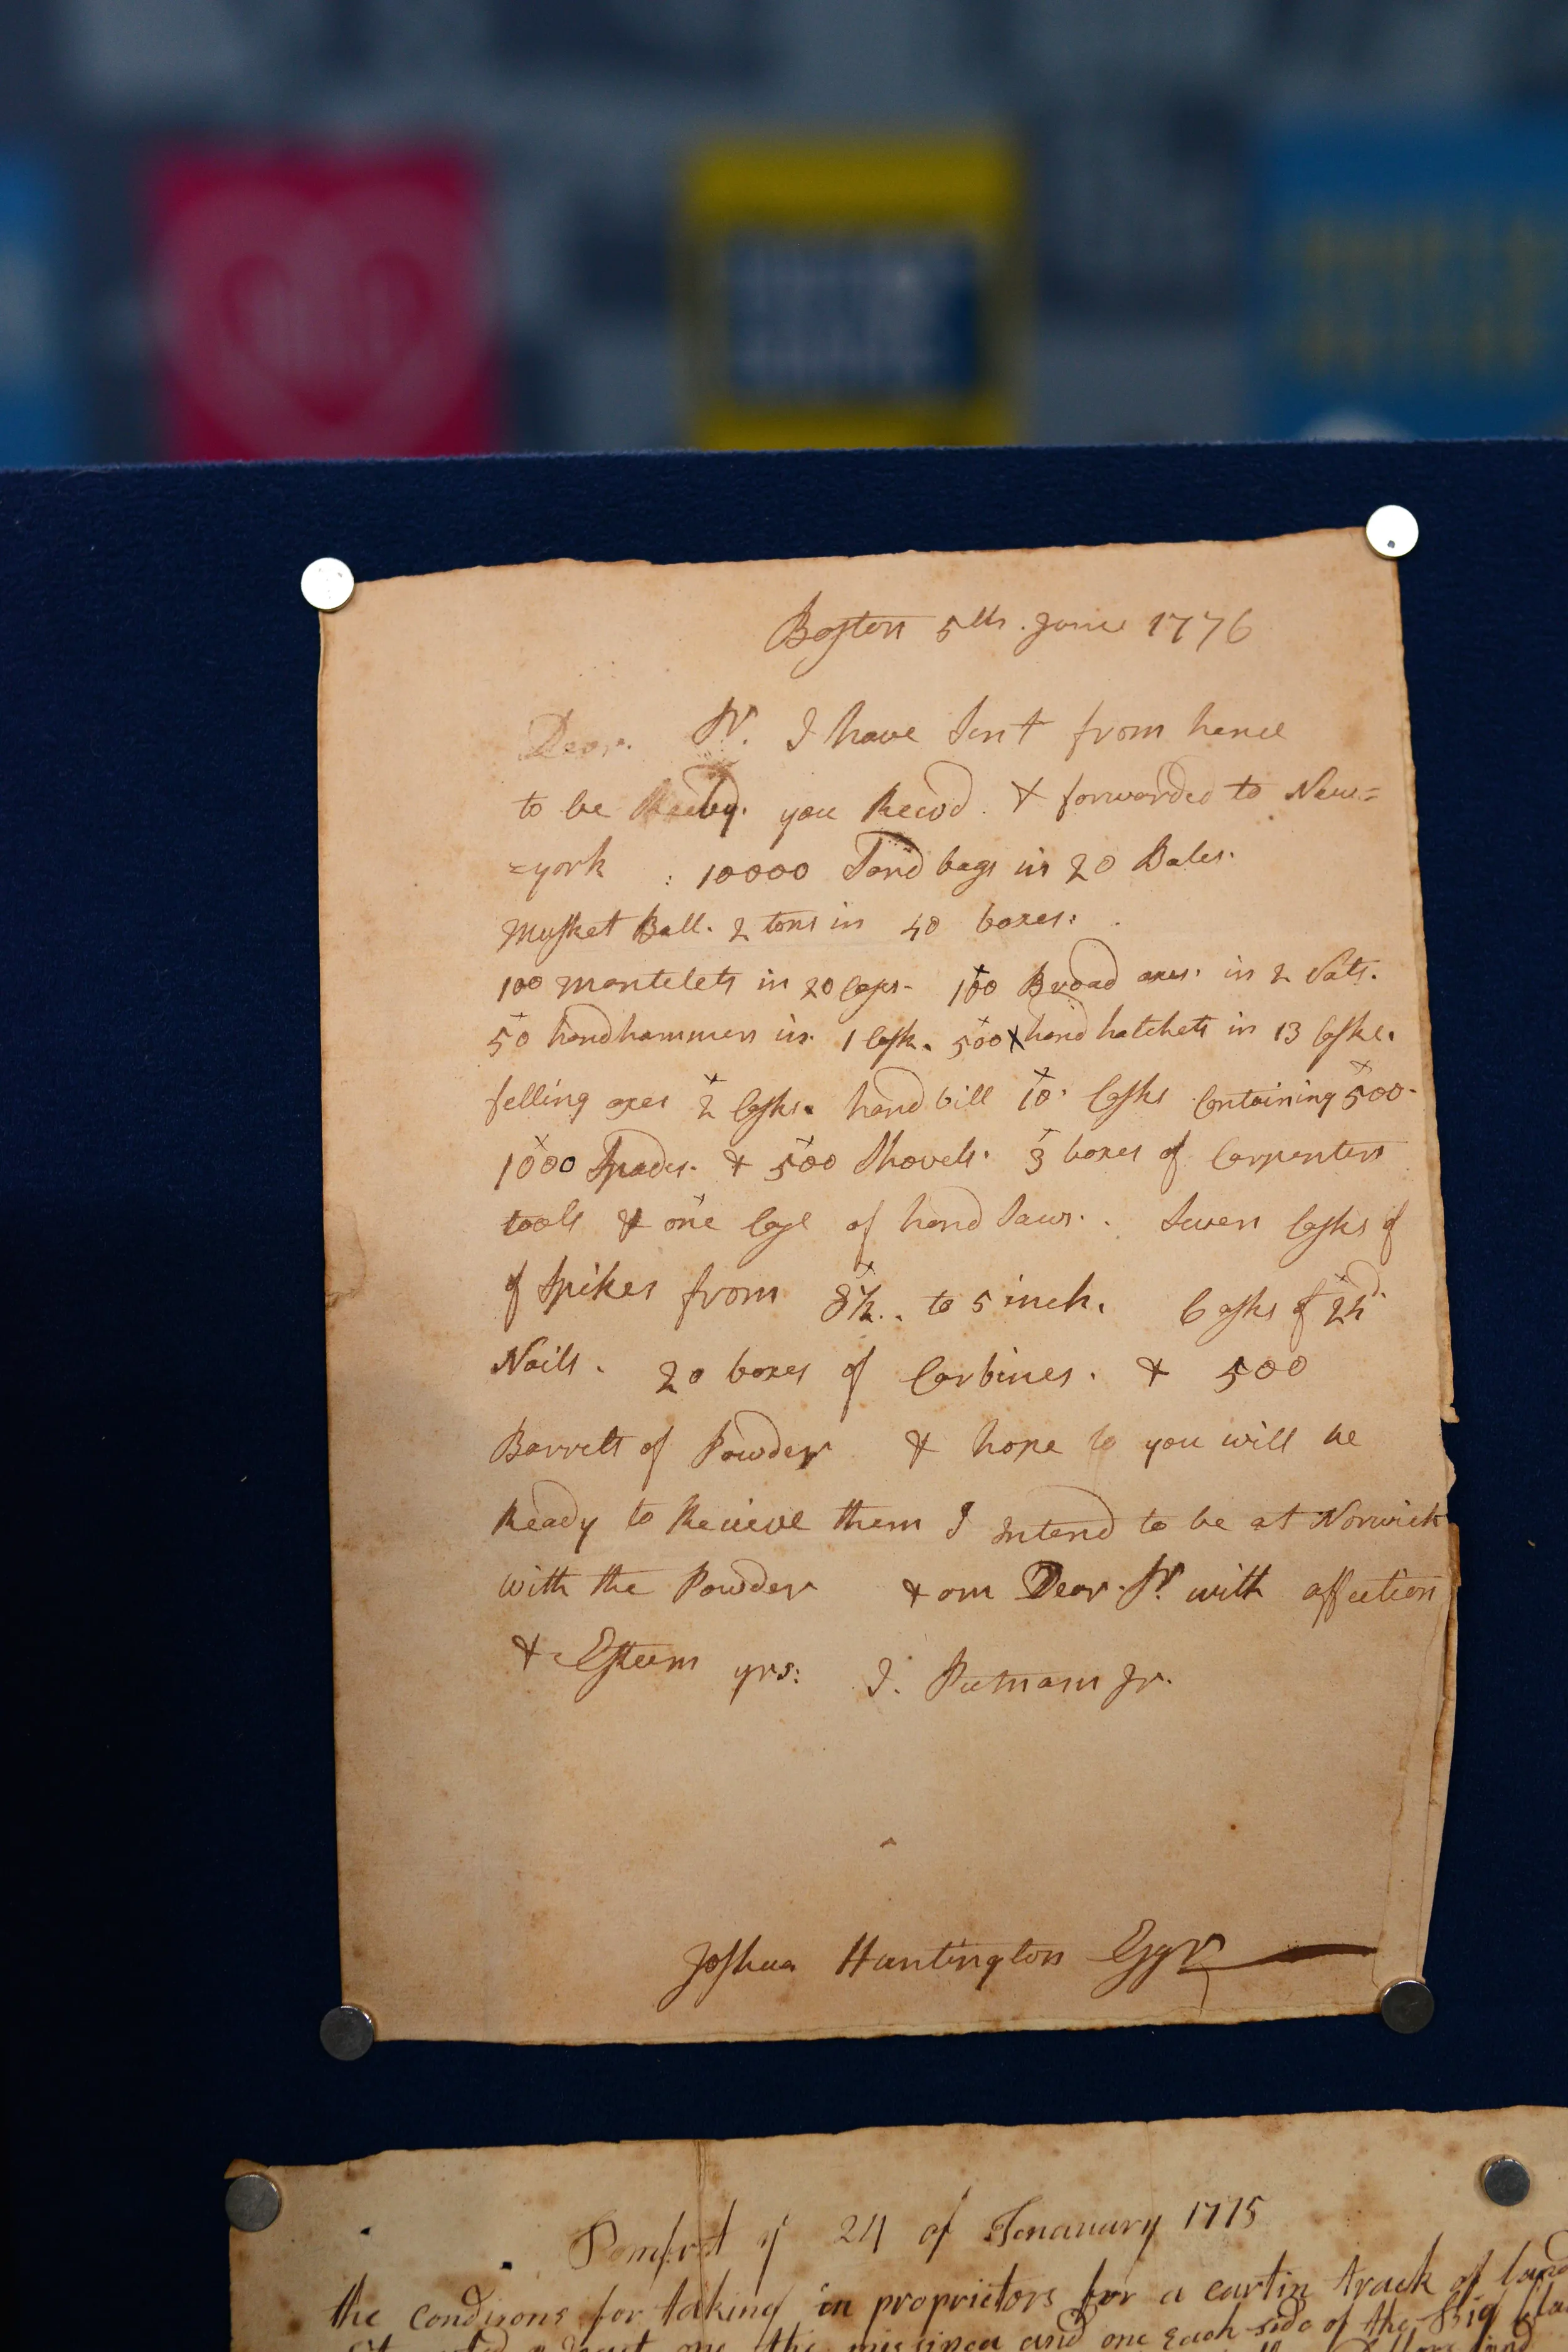 Boston 5th. June 1776
Dear. Sr. I have Sent from hence
to be you Recvd. & forwarded to New=
=york : 10000 Sand bags in 20 Bales.
Musket Ball. 2 tons in 40 boxes.
100 Mantelets in 20 Cases. 100 Broad axes. in 2 Vats.
50 hand hammers in. 1 Cask. 500 hand hatchets in 13 Casks.
felling axes 2 Casks. hand bill 10 Casks Containing 500.
1000 Spades. & 500 Shovels. 3 boxes of Carpenters
tools & one Case of hand Saws. Seven Casks of
of Spikes from 8½.. to 5 inch. Casks of
Nails. 20 boxes of Carbines. & 500
Barrells of Powder & hope you will be
Ready to Recieve them I Intend to be at Norwich
with the Powder & am Dear. Sr. with affection
& Esteem yrs: I. Putnam Jr.
Joshua Huntington Esqr
Pomfret ye 24 of Jenauary 1775
the condisons for taking in proprietors for a cartin track of land
one the and one Each side of the Big